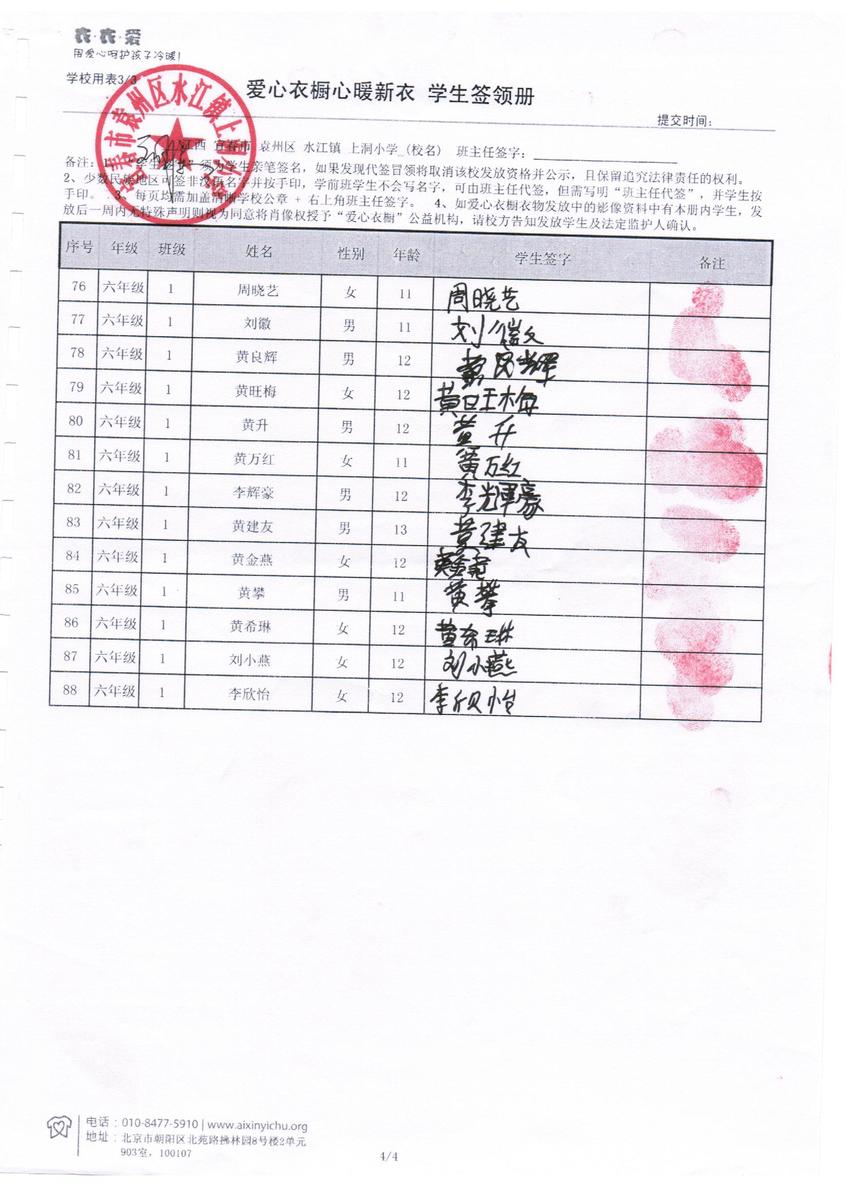 衣·衣·爱
用爱心呵护孩子冷暖!
学校用表3/3
爱心衣橱心暖新衣 学生签领册
提交时间:
江西 宜春市 袁州区 水江镇 上洞小学_(校名) 班主任签字:
备注: 1、"学生签字" 须为学生亲笔签名,如果发现代签冒领将取消该校发放资格并公示,且保留追究法律责任的权利。
2、少数民族地区可签非汉语名字并按手印,学前班学生不会写名字,可由班主任代签,但需写明"班主任代签",并学生按
手印。 3、每页均需加盖清晰学校公章 + 右上角班主任签字。 4、如爱心衣橱衣物发放中的影像资料中有本册内学生,发
放后一周内无特殊声明则视为同意将肖像权授予"爱心衣橱"公益机构,请校方告知发放学生及法定监护人确认。
序号 年级 班级 姓名 性别 年龄 学生签字 备注
76 六年级 1 周晓艺 女 11 周晓艺
77 六年级 1 刘徽 男 11 刘徽
78 六年级 1 黄良辉 男 12 黄良辉
79 六年级 1 黄旺梅 女 12 黄旺梅
80 六年级 1 黄升 男 12 黄升
81 六年级 1 黄万红 女 11 黄万红
82 六年级 1 李辉豪 男 12 李辉豪
83 六年级 1 黄建友 男 13 黄建友
84 六年级 1 黄金燕 女 12
85 六年级 1 黄攀 男 11 黄攀
86 六年级 1 黄希琳 女 12 黄希琳
87 六年级 1 刘小燕 女 12 刘小燕
88 六年级 1 李欣怡 女 12 李欣怡
电话:010-8477-5910 | www.aixinyichu.org
地址:北京市朝阳区北苑路拂林园8号楼2单元
903室,100107
4/4